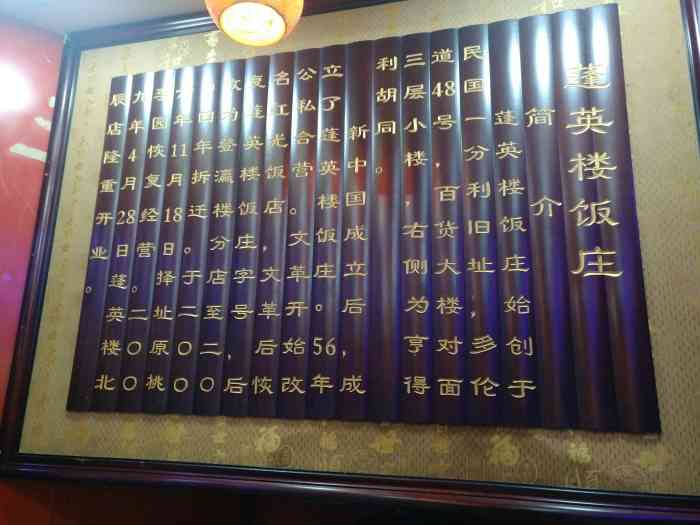 蓬英楼饭庄
简介
蓬英楼饭庄始创于
民国一分利旧址，多伦
道48号，百货大楼对面
三层小楼，右侧为亨得
利胡同。
新中国成立后，成
立了蓬英楼饭庄。56年
公私合营。文革开始改
名红光饭店，文革后恢
复蓬英楼饭庄字号，后
改为登瀛楼分店至二〇
〇四年拆迁。于二〇〇
六年11月18日择址原桃
李园恢复经营。二〇〇
九年4月28日蓬英楼北
辰店隆重开业。